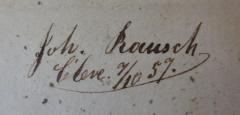 Joh. Rausch
Cleve. 7/10 57.